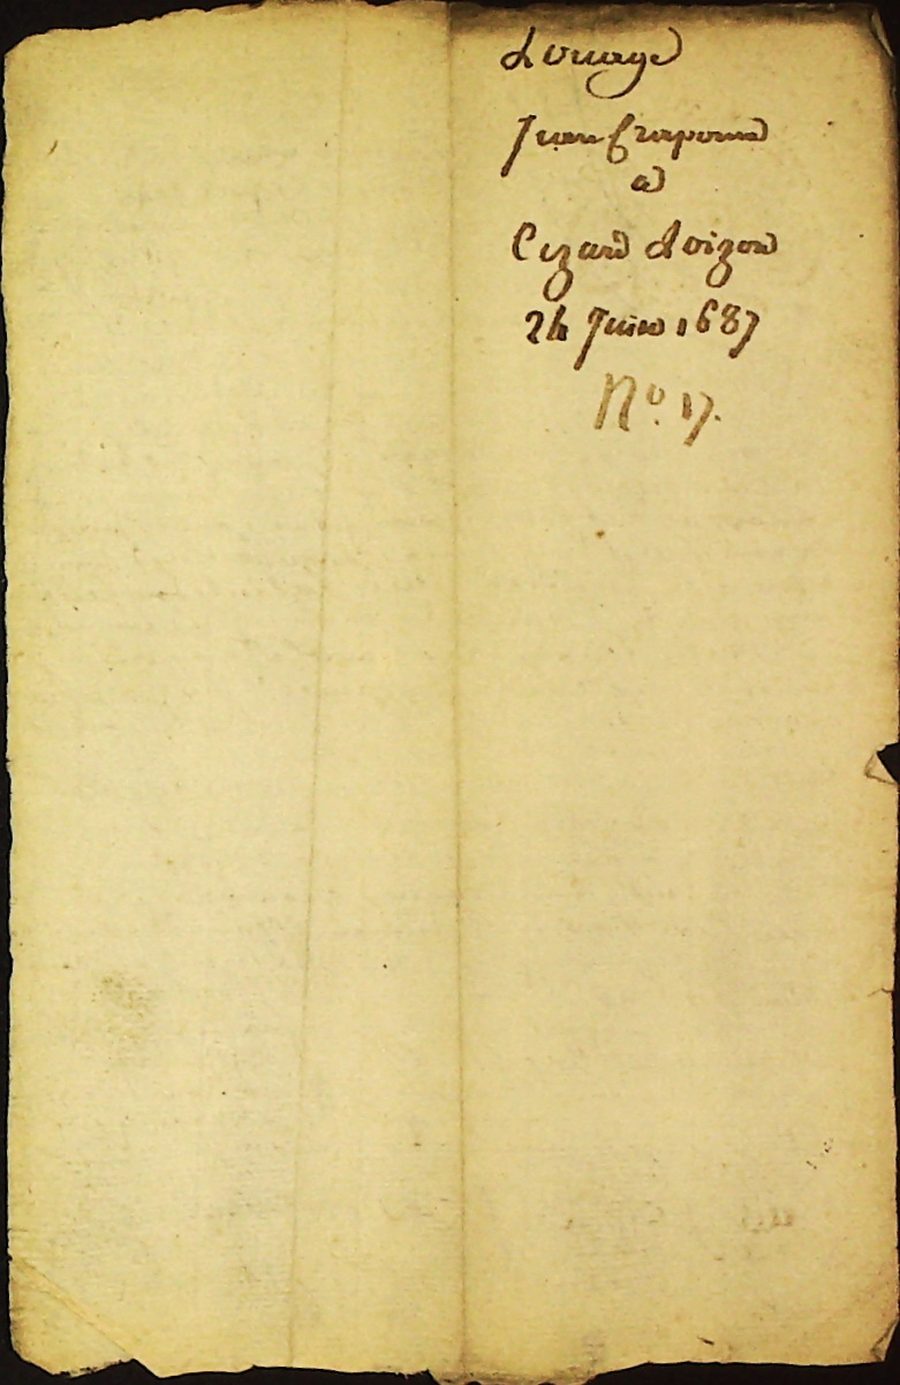 Louage
Jean Crapone
a
Cezard Loizon
24 Juin 1687
No. 17.